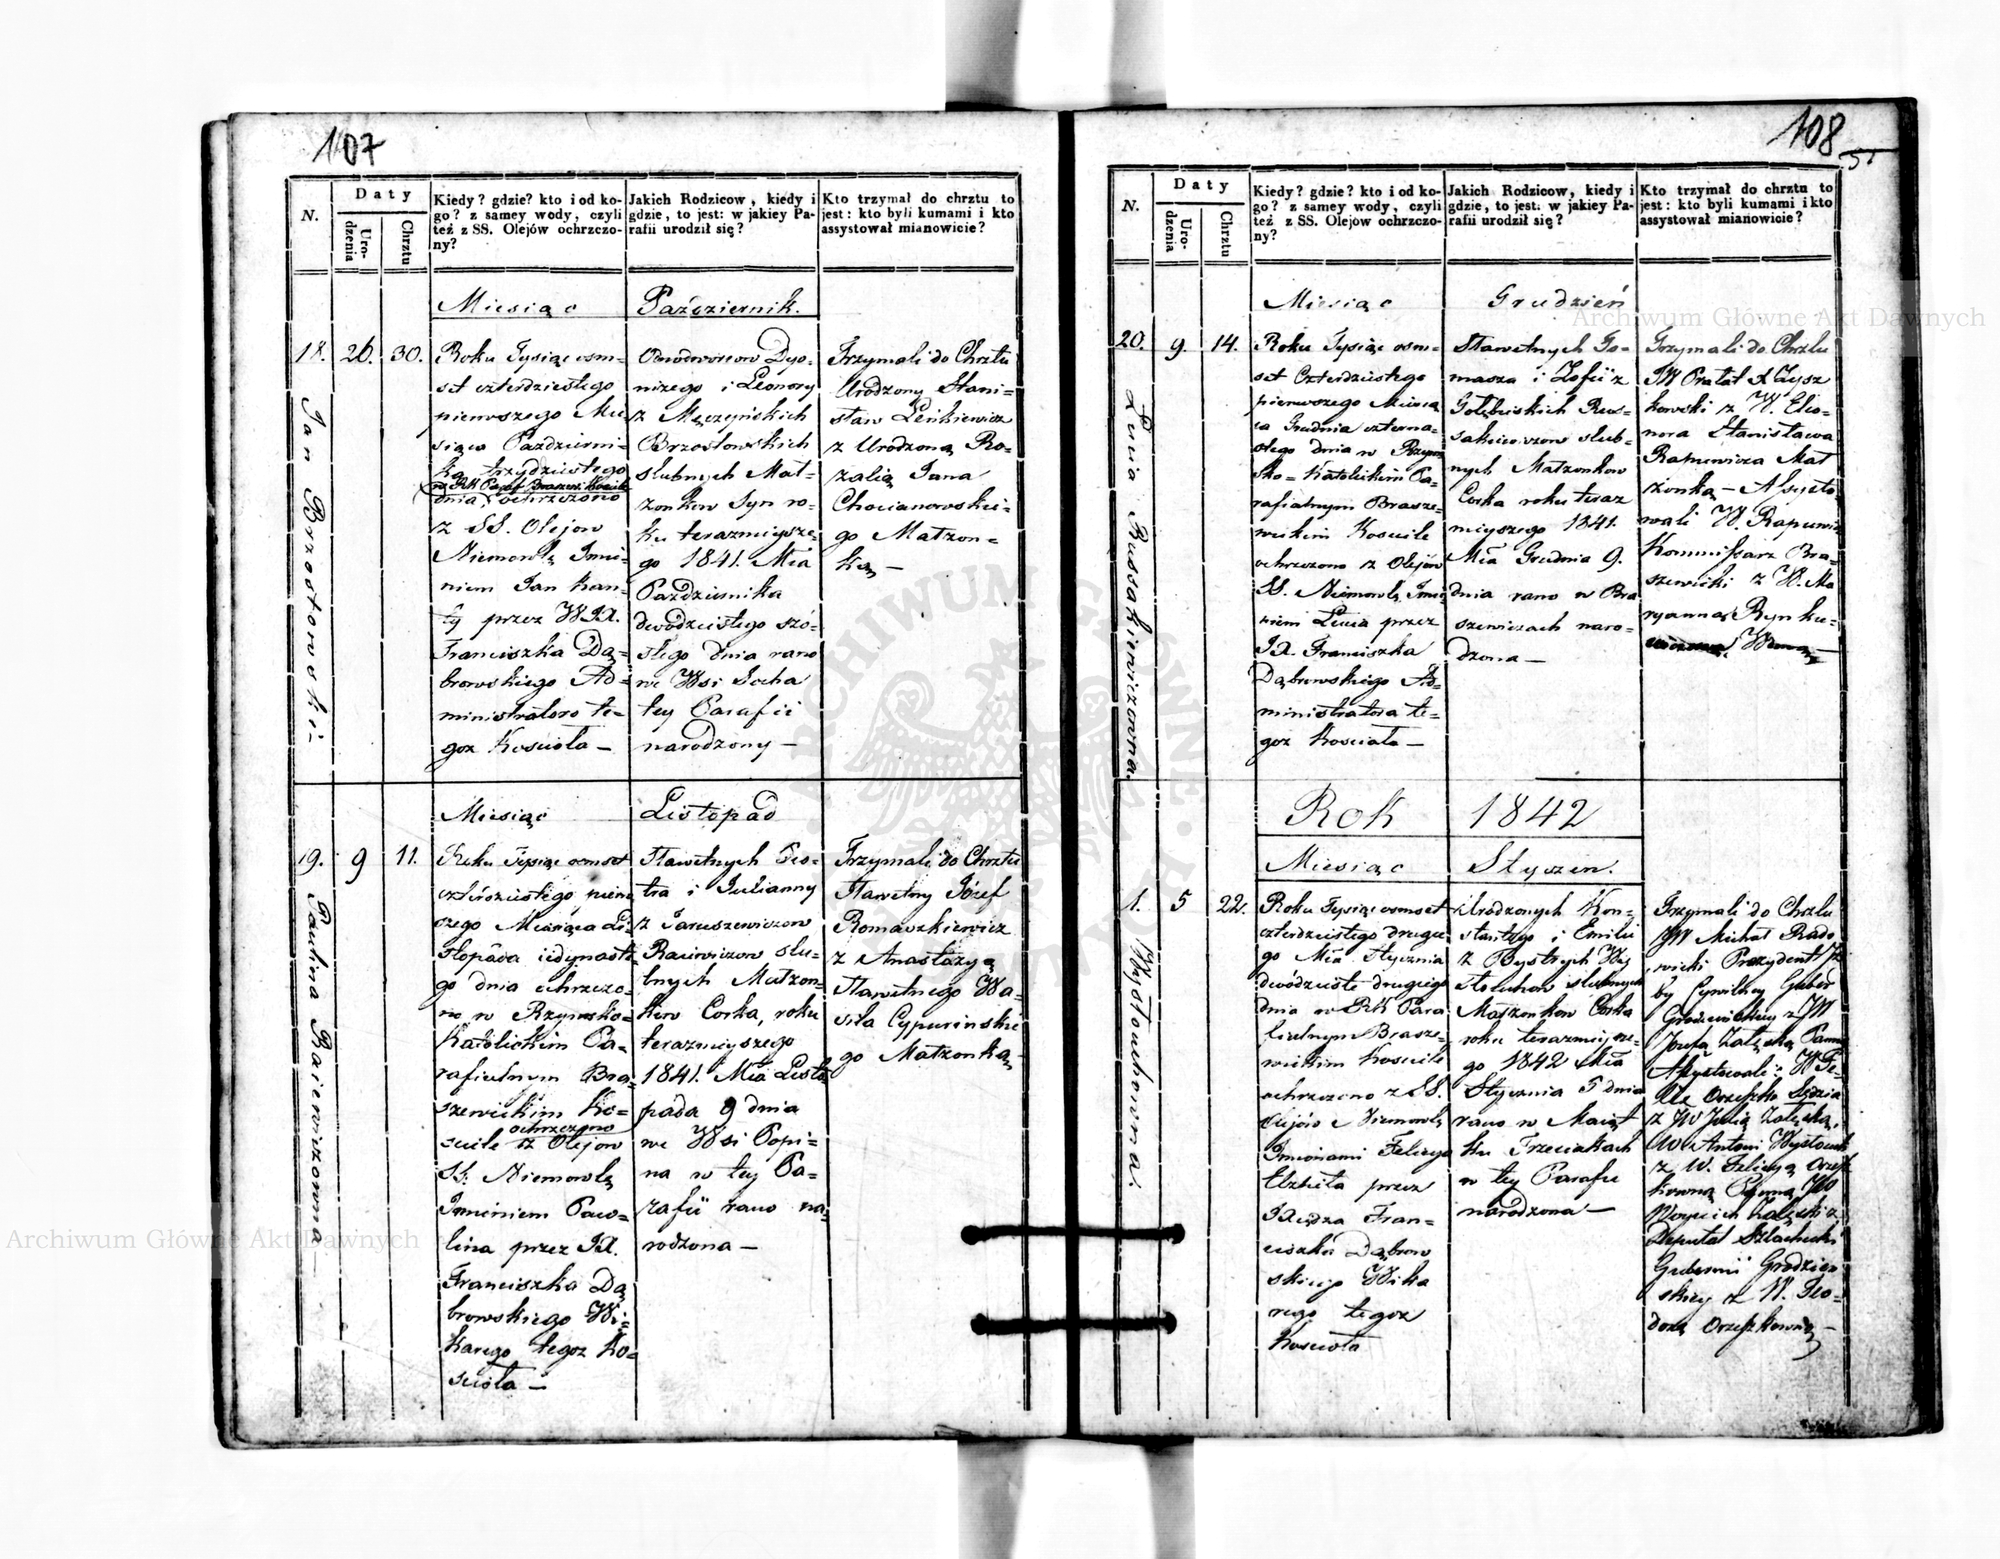 107
N.
Daty
Uro-
dzenia
Chrztu
Kiedy? gdzie? kto i od ko-
go? z samey wody, czyli
też z SS. Olejów ochrzczo-
ny?
Jakich Rodzicow, kiedy i
gdzie, to jest: w jakiey Pa-
rafii urodził się?
Kto trzymał do chrztu to
jest: kto byli kumami i kto
assystował mianowicie?
Miesiąc Październik.
18. 26. 30.
Jan Brzostowski
Roku Tysiąc osm-
set czterdziestego
pierwszego Mie
siąca Październi-
ka trzydziestego
dnia, ochrzczono
z SS. Olejow
Niemowlę Imie-
niem Jan Kan-
ty przez WJX.
Franciszka Dą-
browskiego Ad-
ministratora te-
goz Kościoła —
Odnodworcow Dyo-
nizego i Leonory
z Męczyńskich
Brzostowskich
slubnych Mał-
zonkow Syn ro-
ku terazniejsze-
go 1841. Mca
Października
dwódziestego szó-
stego dnia rano
we Wsi Socha
tey Parafii
narodzony —
Trzymali do Chrztu
Urodzony Stani-
sław Lenkiewicz
z Urodzoną Ro-
zalią Jana
Chocianowskie-
go Małzon-
ką —
Miesiąc Listopad
19. 9 11.
Paulina Raiewiczowna
Roku Tysiąc osmset
czterdziestego pierw
szego Miesiąca Li-
stopada iedynaste
go dnia ochrzczo-
no w Rzymsko-
Katolickim Pa-
rafialnym Bra-
szewickim Ko-
ochrzczono
sciele z Olejow
SS. Niemowlę
Imieniem Pau-
lina przez JX.
Franciszka Dą
browskiego Wi-
karego tegoz Ko-
scioła —
Sławetnych Pio-
tra i Julianny
z Jaruszewiczow
Raiewiczow slu-
bnych Małzon-
kow Corka, roku
terazniejszego
1841. Mca Listo
pada 9 dnia
we Wsi Popi-
na w tey Pa-
rafii rano na-
rodzona —
Trzymali do Chrztu
Sławetny Józef
Romaszkiewicz
z Anastazyą
Sławetnego Wa-
sila Cypurinskie
go Małzonką —
108
51
N.
Daty
Uro-
dzenia
Chrztu
Kiedy? gdzie? kto i od ko-
go? z samey wody, czyli
też z SS. Olejów ochrzczo-
ny?
Jakich Rodzicow, kiedy i
gdzie, to jest: w jakiey Pa-
rafii urodził się?
Kto trzymał do chrztu to
jest: kto byli kumami i kto
assystował mianowicie?
Miesiąc Grudzień
20. 9. 14.
Łucia Russakiewiczowna
Roku Tysiąc osm-
set Czterdziestego
pierwszego Miesią
ca Grudnia czterna-
stego dnia w Rzym
sko-Katolickim Pa-
rafialnym Brasze-
wickim Kosciele
ochrzczono z Olejów
SS. Niemowlę Imie
niem Łucia przez
JX. Franciszka
Dąbrowskiego Ad-
ministratora te-
goz Kosciała —
Sławetnych To-
masza i Zofii z
Gołębiskich Rus-
sakiewiczow slub-
nych Małzonkow
Corka roku teraz
nieyszego 1841.
Mca Grudnia 9.
dnia rano w Bra
szewiczach naro-
dzona —
Trzymali do Chrztu
JW Prałat A Zysz
kowski z W. Eleo-
nora Stanisława
Rapiewicza Mał
zonką — Assysto-
wali W. Rapiewicz
Kommissarz Bra-
szewicki z W. Ma
ryanną Rynkie-
Rok 1842
Miesiąc Styczen.
1. 5 22.
Wysłouchowna.
Roku Tysiąc osmset
czterdziestego drugie
go Mca Stycznia
dwódzieste drugiego
dnia w RK Para
fialnym Brasze-
wickim Kosciele
ochrzczono z SS.
Olejów Niemowlę
Imionami Felicya
Elzbieta przez
Xiędza Fran-
ciszka Dąbrow
skiego Wika
rego tegoz
Koscioła
Urodzonych Kon-
stantego i Emilii
z Bystrych Wy
słouchow slubnych
Małzonkow Corka
roku terazniejsze-
go 1842 Mca
Stycznia 5 dnia
rano w Maiąt
ku Trzeciakach
w tey Parafii
narodzona —
Trzymali do Chrztu
JW Michał Rado
wicki Prezydent Iz
by Cywilney Guber
Grodzienskiey z JW
Jozefą Załęską Panną
Assystowali: W Fe-
lix Orzeszko Sędzia
z JW Julią Załęską,
W Antoni Wysłouch
z W. Felicyą Orzesz
kowną Panną, JW
Woyciech Załęski z
Deputat Szlachecki
Gubernii Grodzien
skiey z W. Teo-
dorą Orzeszkowną —
Archiwum Główne Akt Dawnych
Archiwum Główne Akt Dawnych